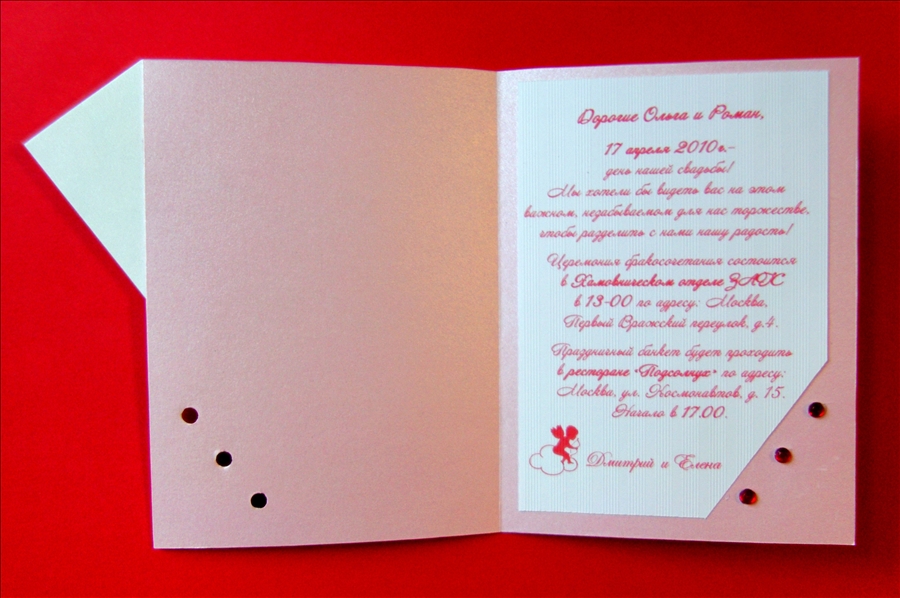 Дорогие Ольга и Роман,
17 апреля 2010г.-
день нашей свадьбы!
Мы хотели бы видеть вас на этом
важном, незабываемом для нас торжестве,
чтобы разделить с нами нашу радость!
Церемония бракосочетания состоится
в Хамовническом отделе ЗАГС
в 13-00 по адресу: Москва,
Первый Сражский переулок, д.4.
Праздничный банкет будет проходить
в ресторане "Подсолнух" по адресу:
Москва, ул. Космонавтов, д. 15.
Начало в 17.00.
Дмитрий и Елена